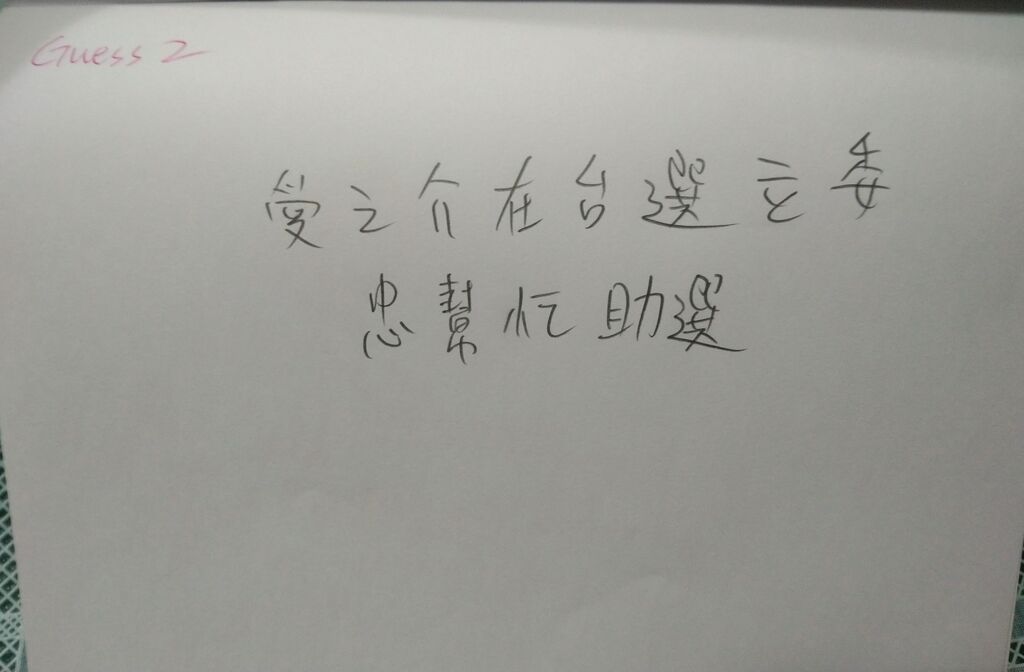 Guess 2
受之介在台選立委
忠幫忙助選